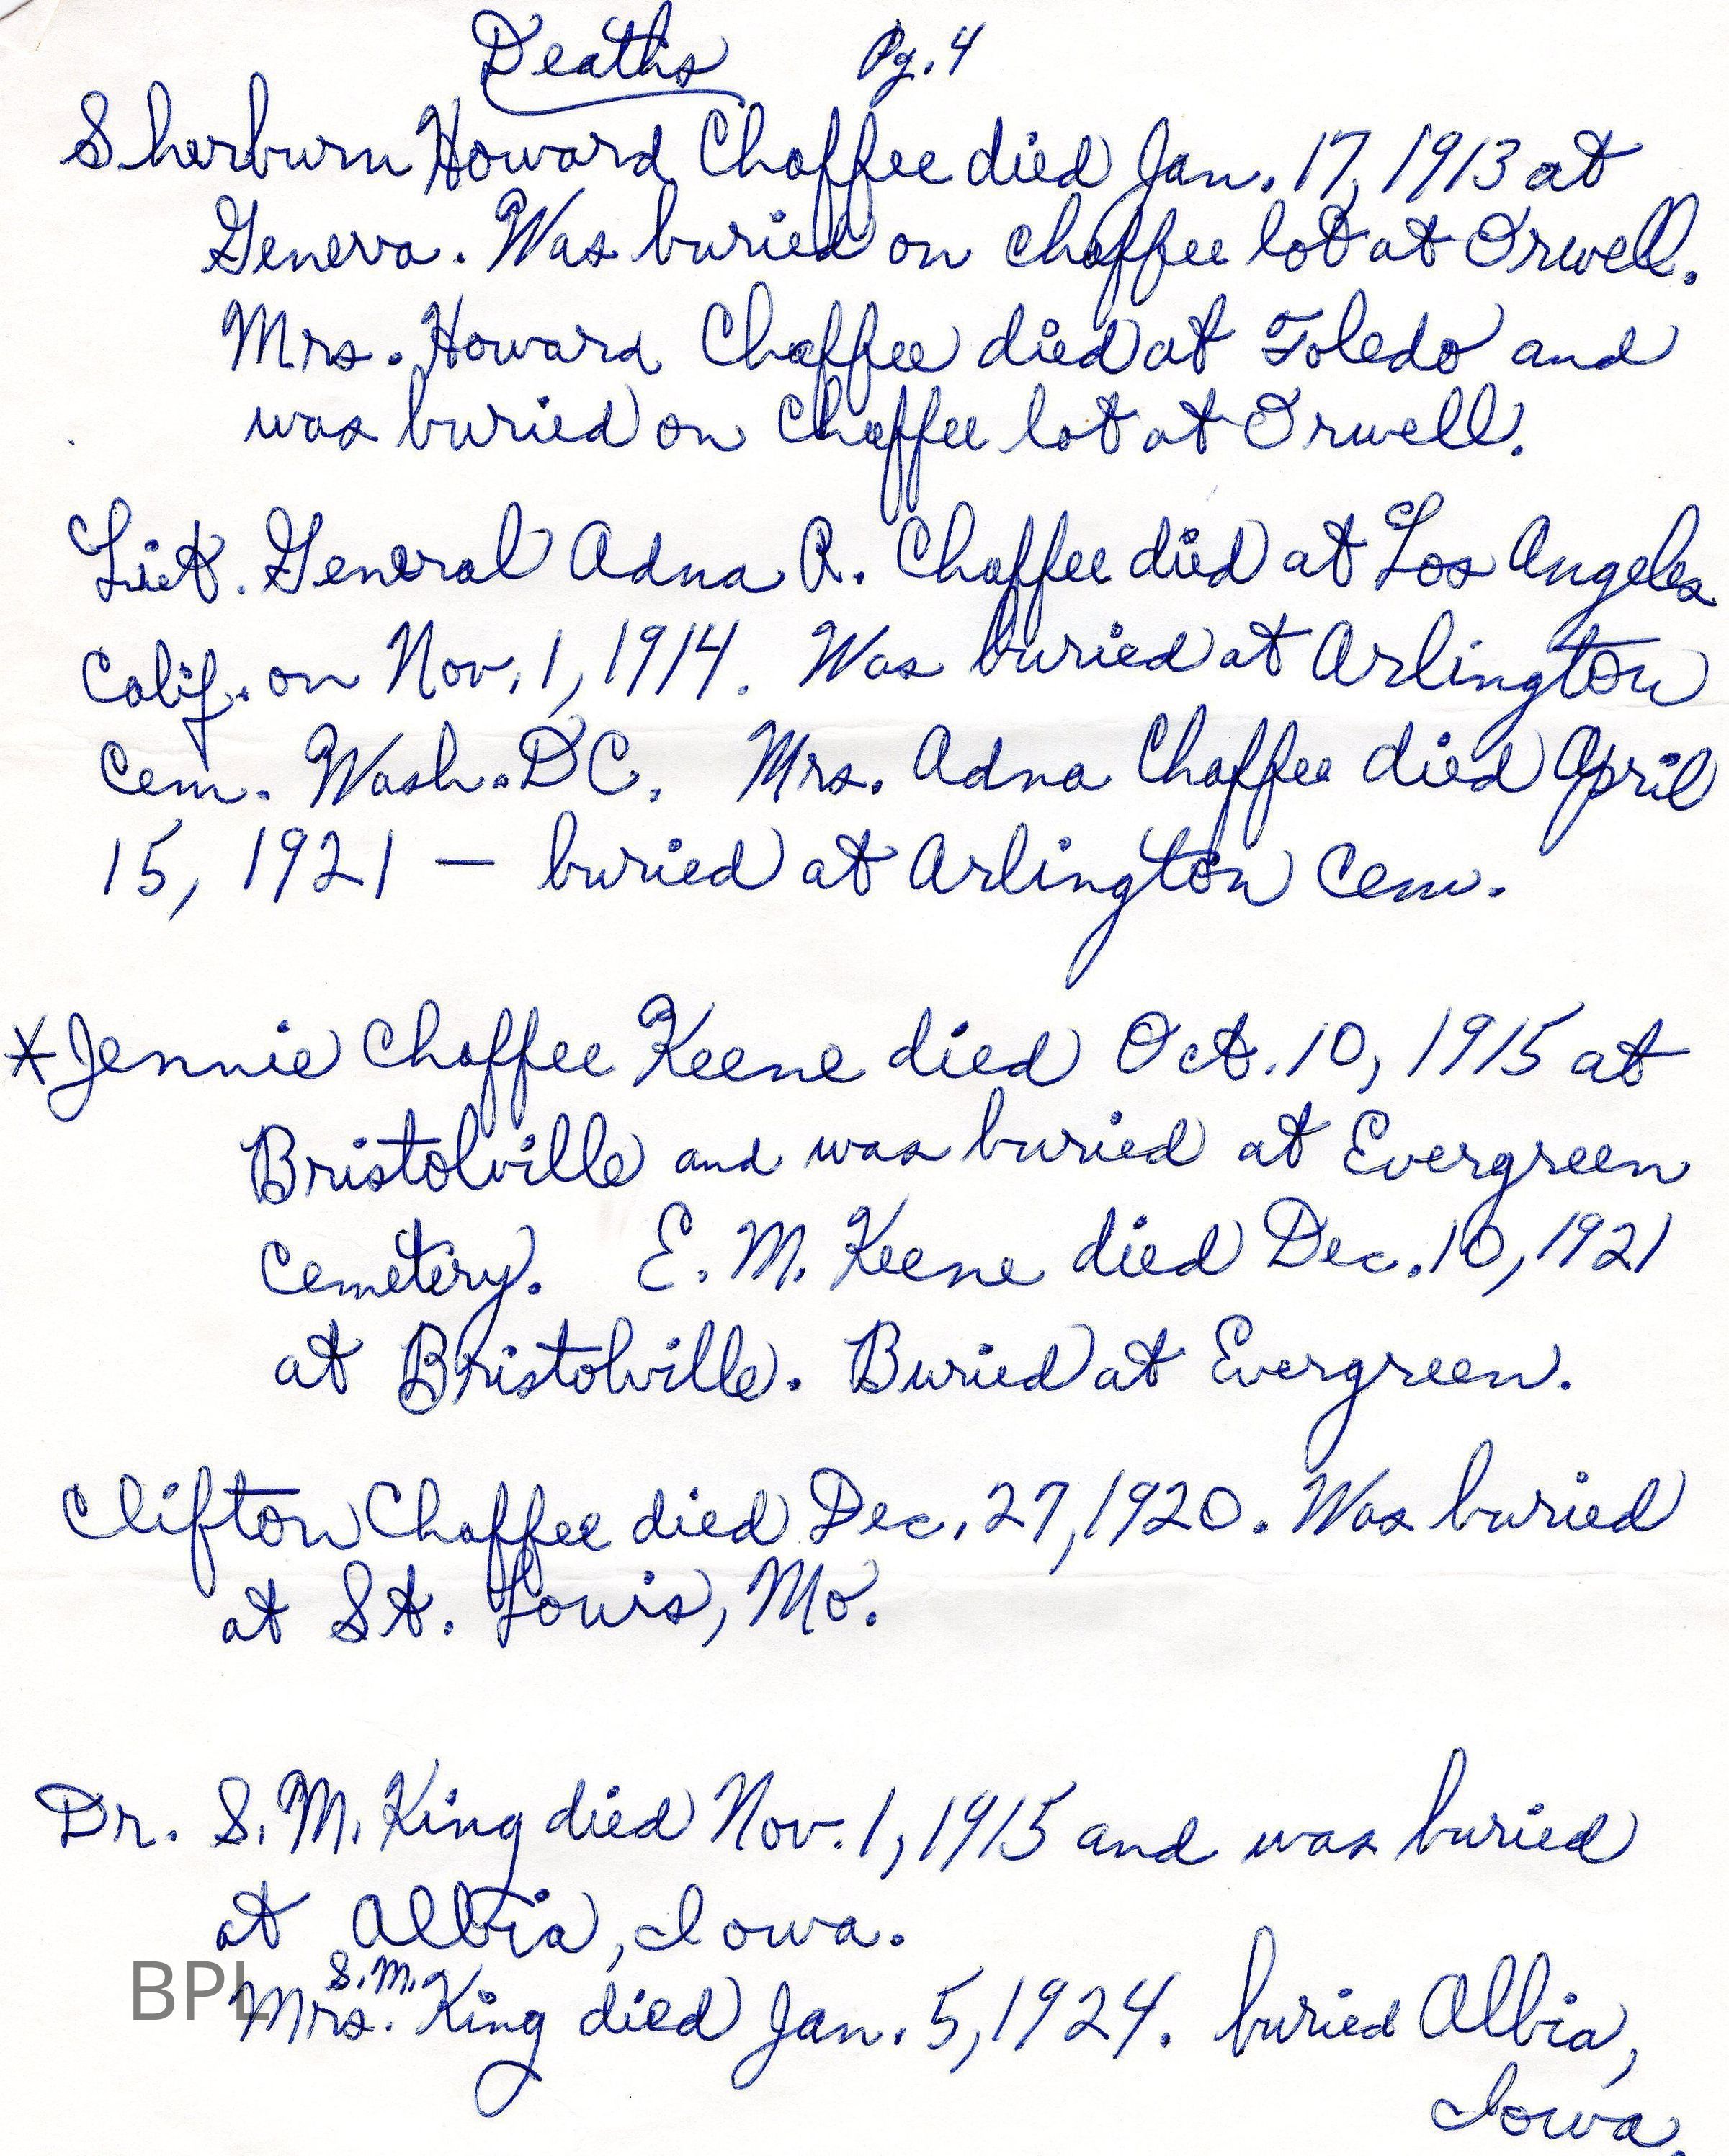 Deaths Pg. 4
Sherburn Howard Chaffee died Jan. 17, 1913 at
Geneva. Was buried on Chaffee lot at Orwell.
Mrs. Howard Chaffee died at Toledo and
was buried on Chaffee lot at Orwell.
Liet. General Adna R. Chaffee died at Los Angeles
Calif. on Nov. 1, 1914. Was buried at Arlington
Cem. Wash. DC. Mrs. Adna Chaffee died April
15, 1921 — buried at Arlington Cem.
*Jennie Chaffee Keene died Oct. 10, 1915 at
Bristolville and was buried at Evergreen
Cemetery. E. M. Keene died Dec. 10, 1921
at Bristolville. Buried at Evergreen.
Clifton Chaffee died Dec. 27, 1920. Was buried
at St. Louis, Mo.
Dr. S. M. King died Nov. 1, 1915 and was buried
at Albia, Iowa.
Mrs. S. M. King died Jan. 5, 1924. buried Albia,
Iowa.
BPL